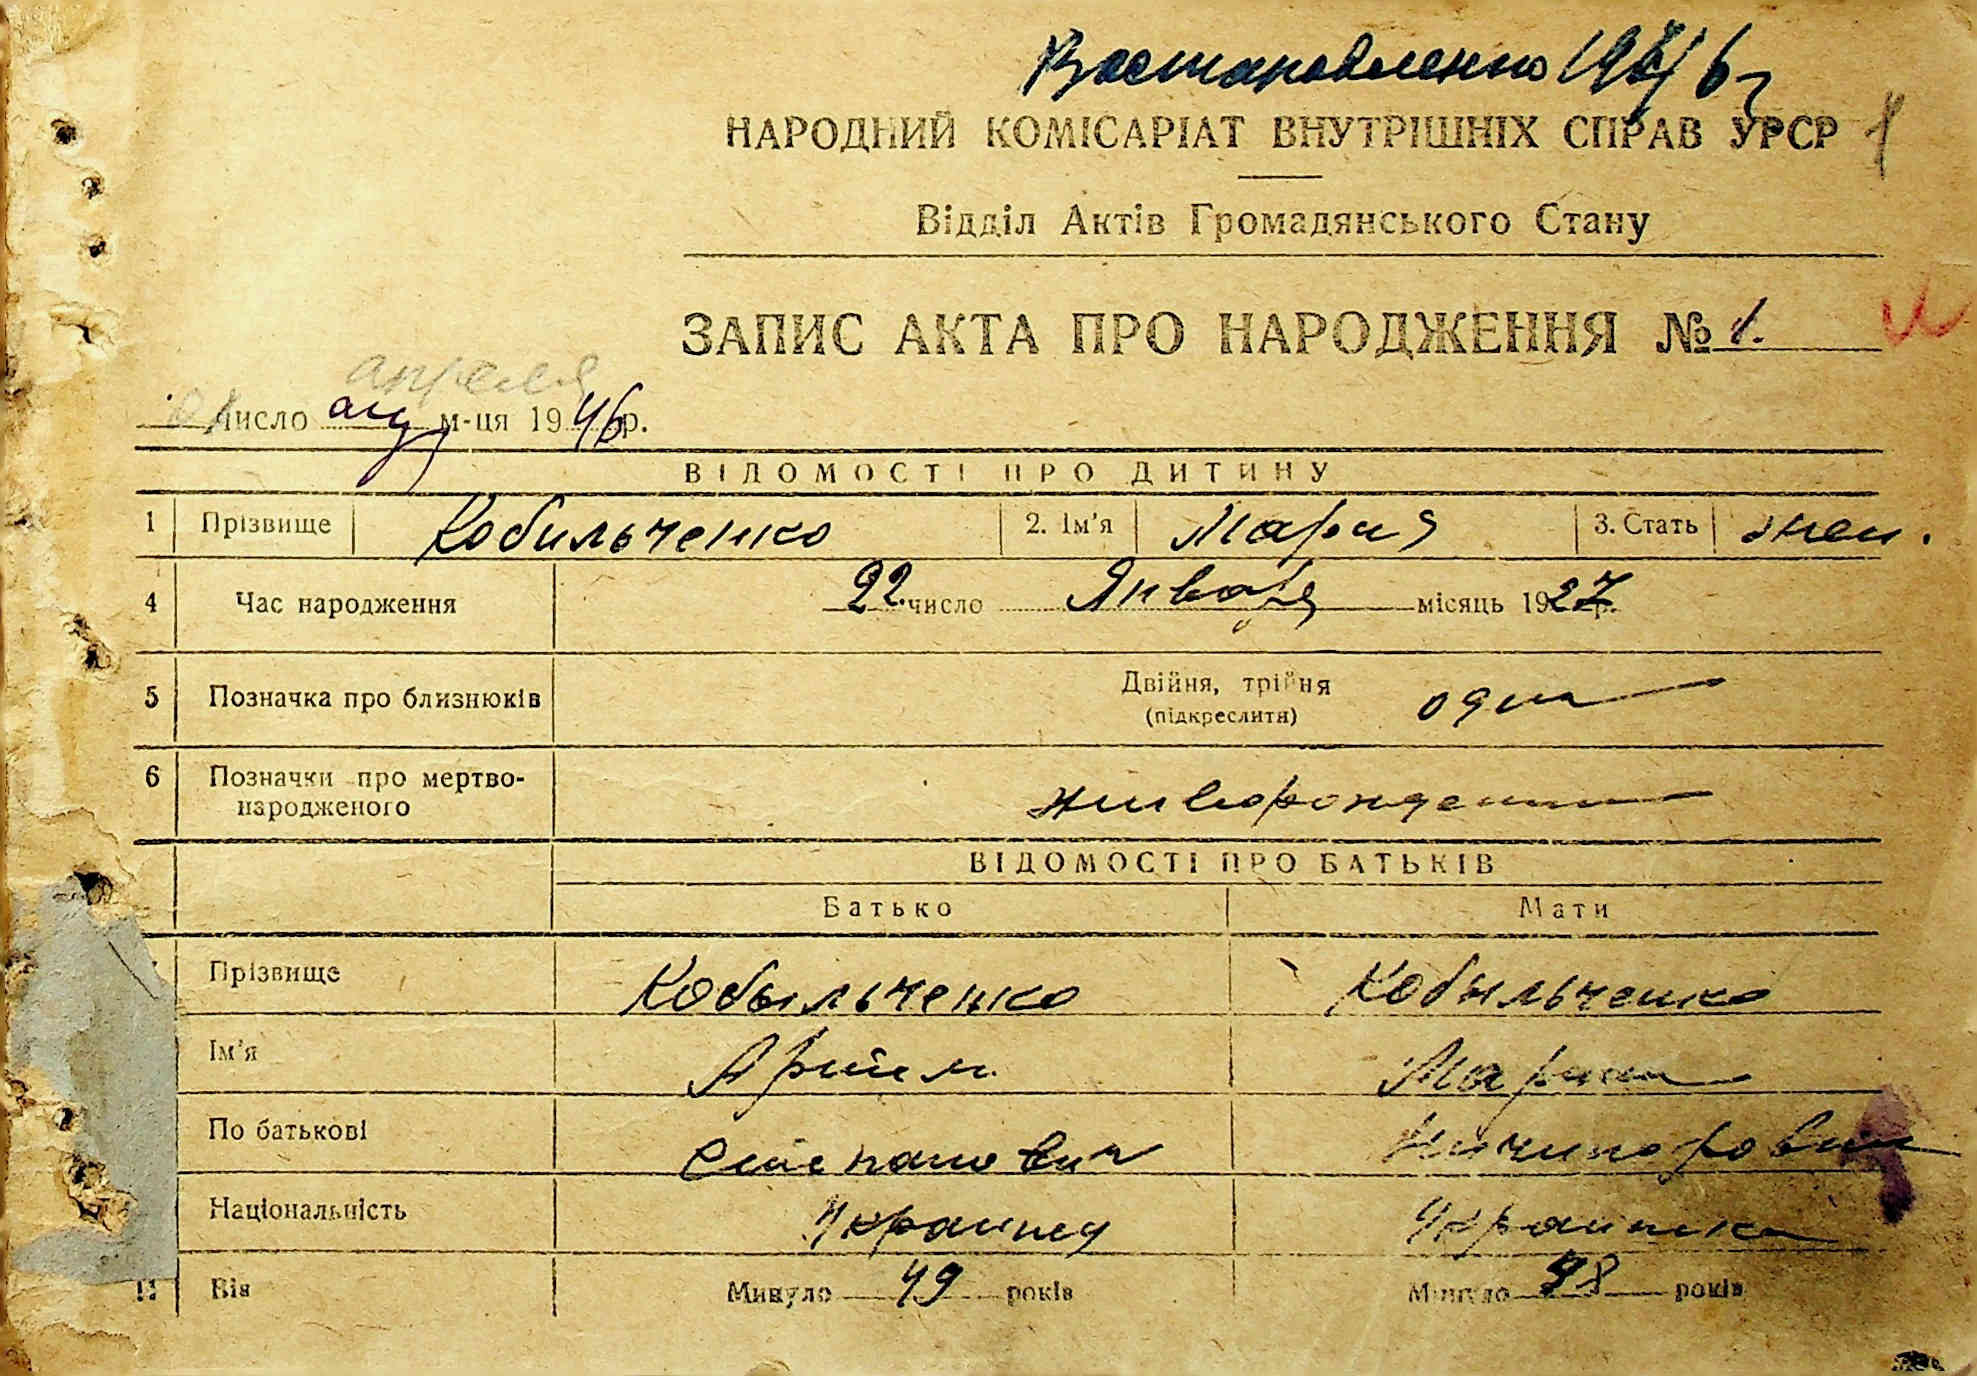 Востановленно 1946 г
НАРОДНИЙ КОМІСАРІАТ ВНУТРІШНІХ СПРАВ УРСР 1
Відділ Актів Громадянського Стану
ЗАПИС АКТА ПРО НАРОДЖЕННЯ № 1.
апреля
число м-ця 1946 р.
ВІДОМОСТІ ПРО ДИТИНУ
1 Прізвище Кобильченко 2. Ім'я Мария 3. Стать жен.
4 Час народження 22. число Января місяць 1927 р.
5 Позначка про близнюків Двійня, трійня
(підкреслити) одна
6 Позначки про мертво-
народженого живорожденна
ВІДОМОСТІ ПРО БАТЬКІВ
Батько Мати
Прізвище Кобыльченко Кобыльченко
Ім'я Артем Мария
По батькові Степанович Ничипоровна
Національність Украинец Украинка
11 Вік Минуло 49 років Минуло 48 років